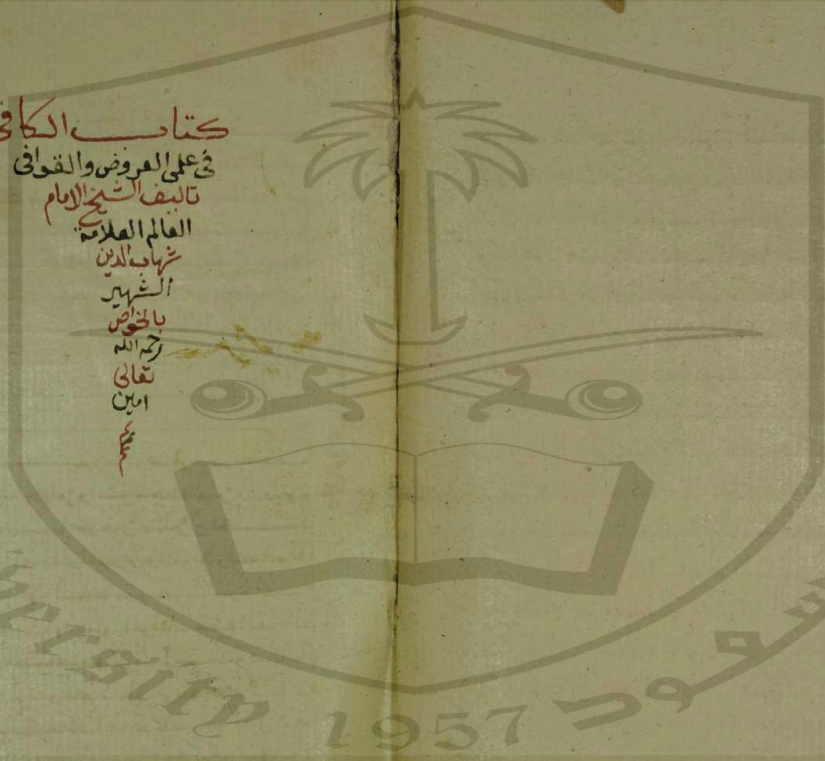 كتاب الكافي
في علمي العروض والقوافي
تاليف الشيخ الامام
العالم العلامة
شهاب الدين
الشهير
بالخواص
رحمه الله
تعالى
امين
versity 1957 سعود